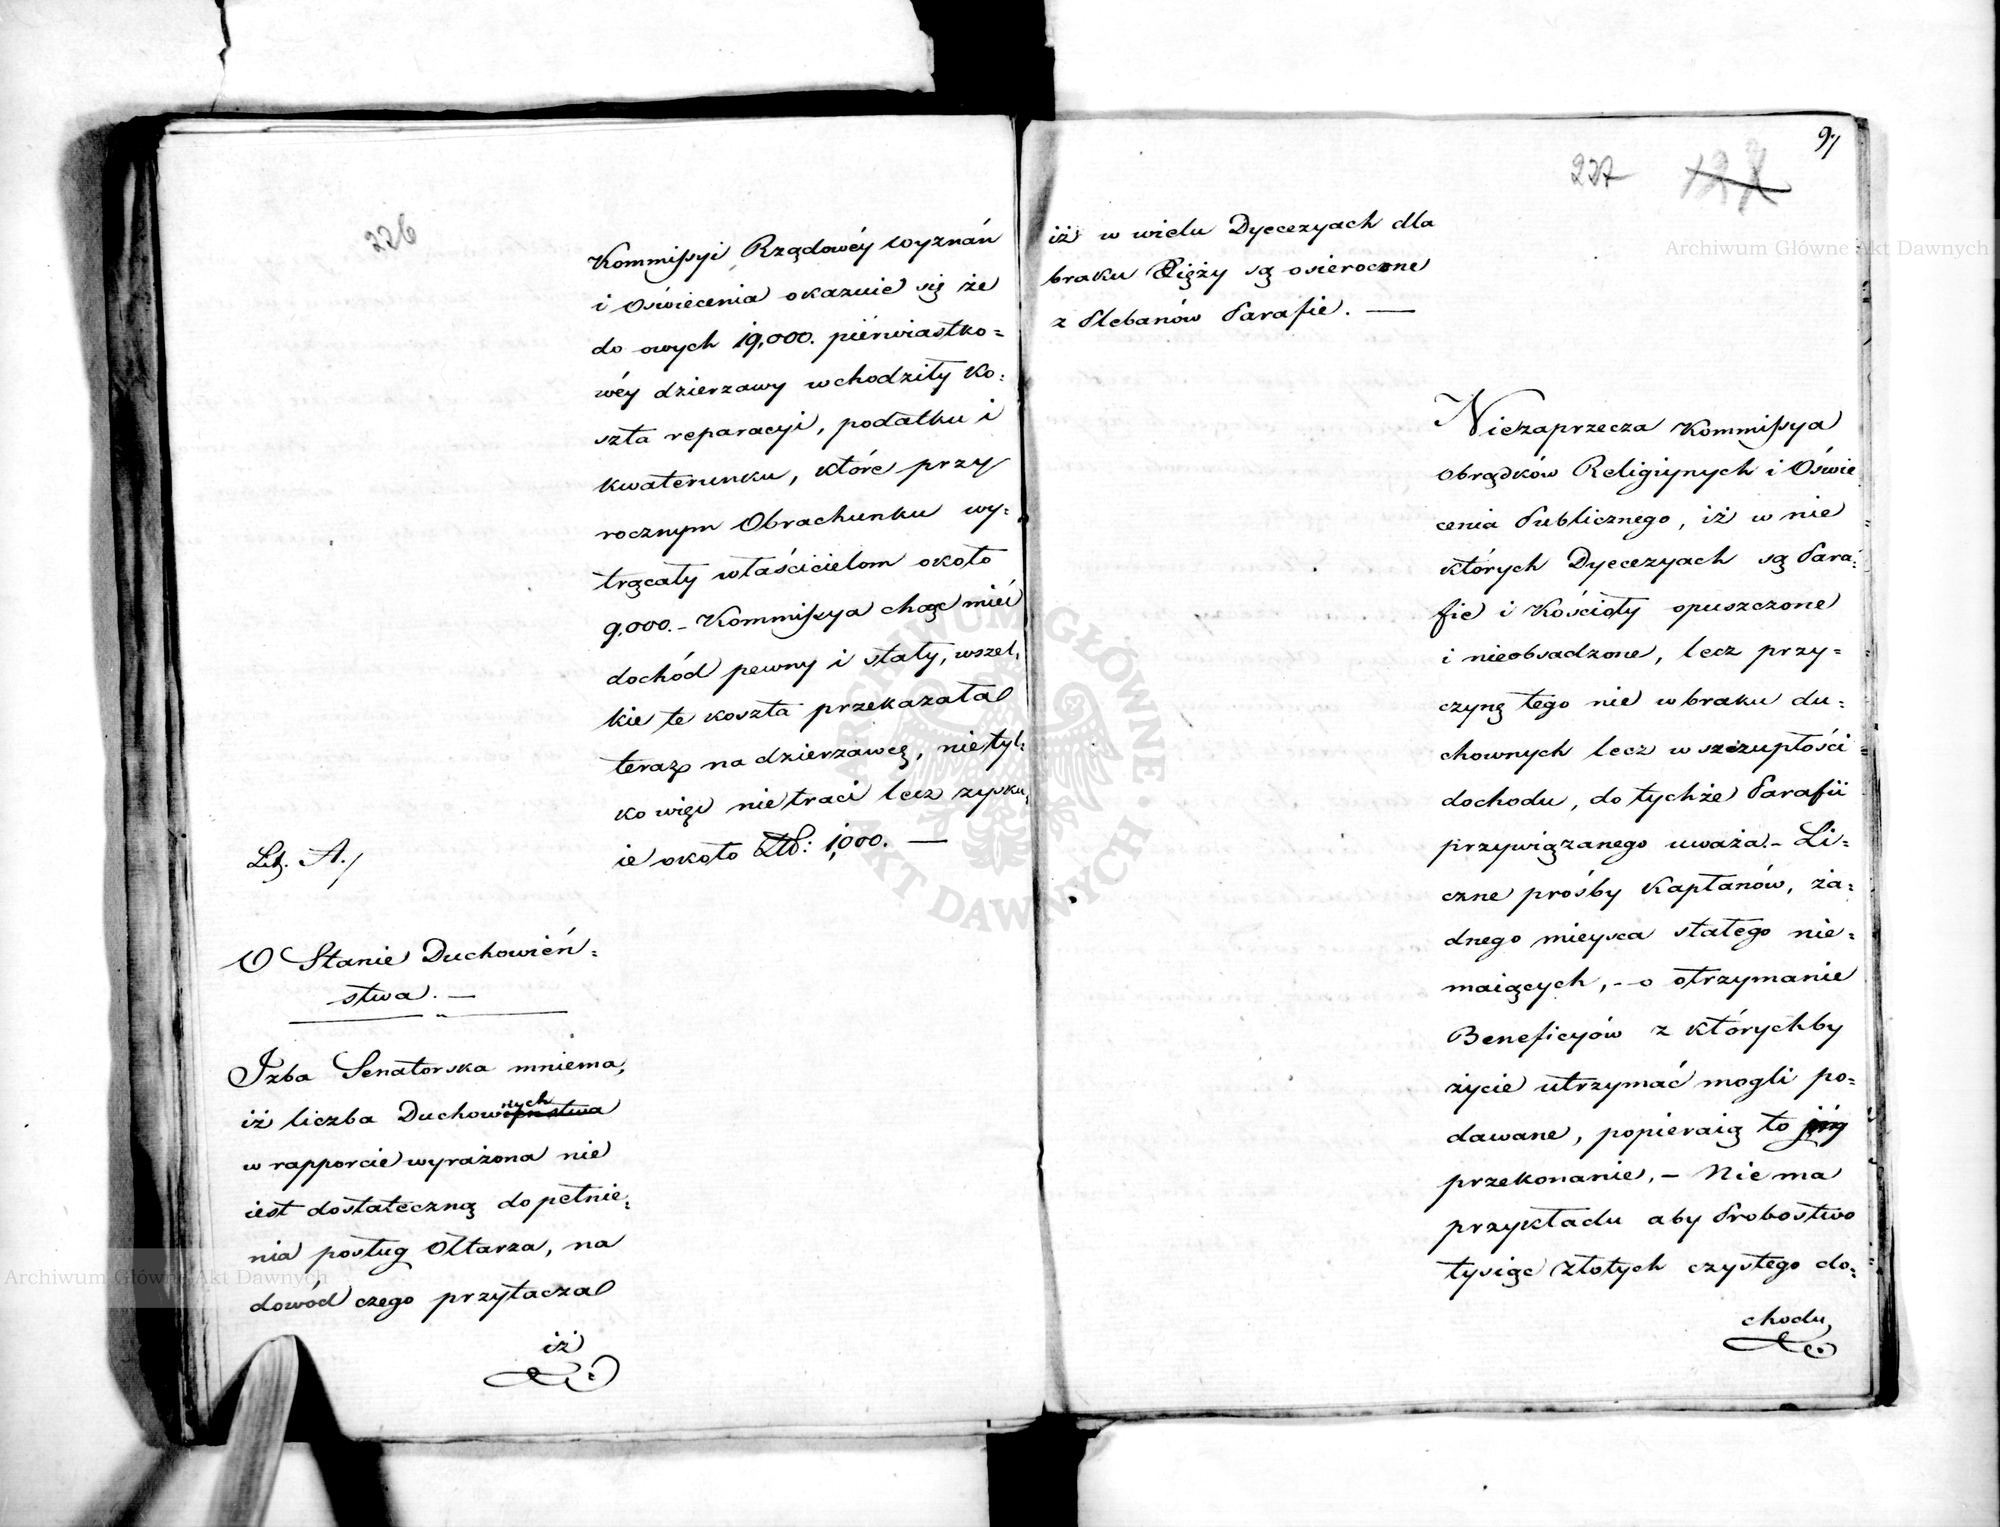 226
Kommissyi Rządowéy Wyznań
i Oświecenia okazuie się że
do owych 19,000. pierwiastko=
wéy dzierzawy wchodziły Ko=
szta reparacyi, podatku i
kwaterunku, które przy
rocznym Obrachunku wy=
trącały właścicielom około
9,000. – Kommissya chcąc mieć
dochód pewny i stały, wszel=
kie te koszta przekazała
teraz na dzierzawcę, nietyl=
ko więc nietraci lecz zysku=
ie około Złł: 1,000. —
Lit. A./
O Stanie Duchowień=
stwa. —
Izba Senatorska mniema,
iż liczba Duchownych
w rapporcie wyrażona nie
iest dostateczną do pełnie=
nia posług Ołtarza, na
dowód czego przytacza
iż
97
227 127
iż w wielu Dyecezyach dla
braku Xięży są osierocone
z Plebanów Parafie. —
Niezaprzecza Kommissya
Obrądków Religiynych i Oświe
cenia Publicznego, iż w nie
których Dyecezyach są Para=
fie i Kościoły opuszczone
i nieobsadzone, lecz przy=
czynę tego nie w braku du=
chownych lecz w szczupłości
dochodu, do tychże Parafii
przywiązanego uważa. – Li=
czne prośby Kapłanów, ża=
dnego mieysca stałego nie=
maiących, – o otrzymanie
Beneficyów z którychby
życie utrzymać mogli po=
dawane, popieraią to iéy
przekonanie. – Nie ma
przykładu aby Probostwo
tysiąc złotych czystego do=
chodu
Archiwum Główne Akt Dawnych
Archiwum Główne Akt Dawnych
ARCHIWUM GŁÓWNE AKT DAWNYCH